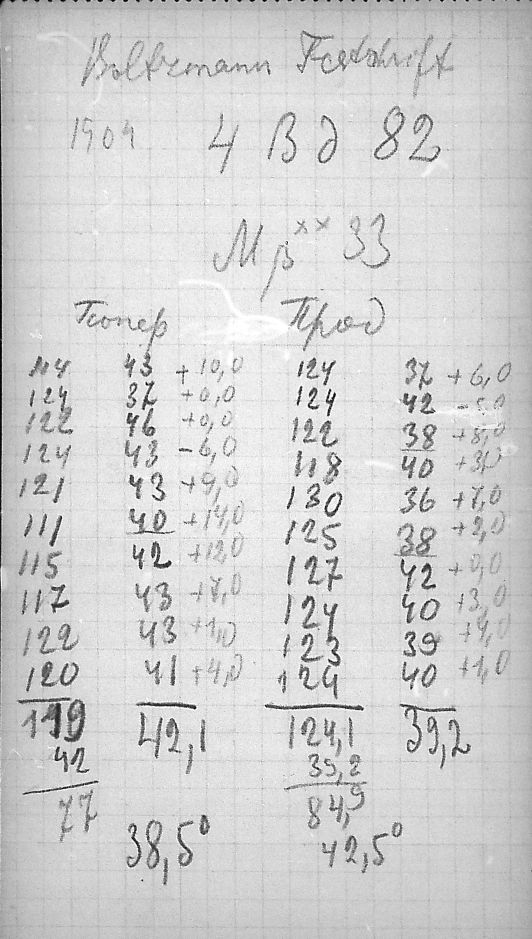 Boltzmann Festschrift
1904 4 Вд 82
Мр xx 33
Попер Прод
114 43 +10,0 124 37 +6,0
124 37 +0,0 124 42 -5,0
122 46 +0,0 122 38 +8,0
124 43 -6,0 118 40 +3,0
121 43 +9,0 130 36 +7,0
111 40 +14,0 125 38 +2,0
115 42 +12,0 127 42 +0,0
117 43 +7,0 124 40 +3,0
122 43 +1,0 123 39 +4,0
120 41 +4,0 124 40 +1,0
119 42,1 124,1 39,2
42 39,2
77 84,9
38,5° 42,5°